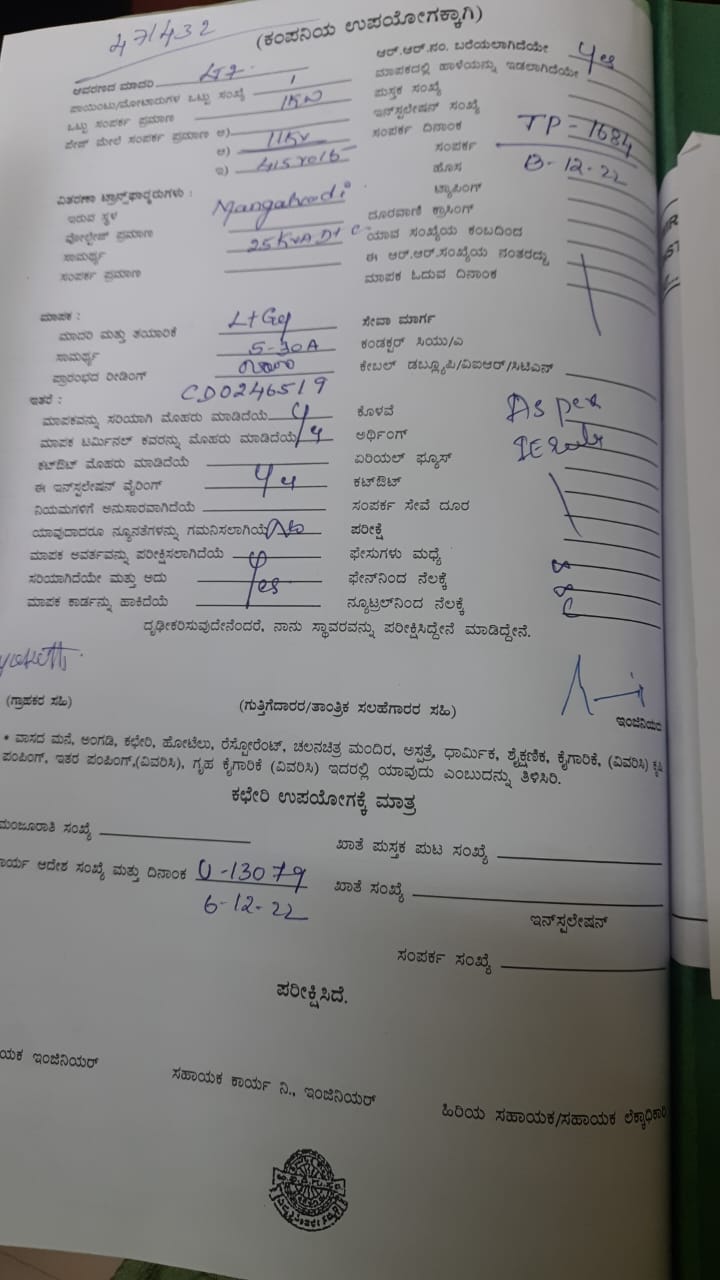 471432
(ಕಂಪನಿಯ ಉಪಯೋಗಕ್ಕಾಗಿ)
ಆವರಣದ ಮಾದರಿ LT7.
ಪಾಯಿಂಟು/ಮೋಟಾರುಗಳ ಒಟ್ಟು ಸಂಖ್ಯೆ 1
ಒಟ್ಟು ಸಂಪರ್ಕ ಪ್ರಮಾಣ 1KW
ಪೇಜ್ ಮೇಲೆ ಸಂಪರ್ಕ ಪ್ರಮಾಣ ಅ) 11KV
ಆ) 415 volt
ಇ)
ಆರ್.ಆರ್.ನಂ. ಬರೆಯಲಾಗಿದೆಯೇ Yes
ಮಾಪಕದಲ್ಲಿ ಹಾಳೆಯನ್ನು ಇಡಲಾಗಿದೆಯೇ
ಪುಸ್ತಕ ಸಂಖ್ಯೆ
ಇನ್‌ಸ್ಪಲೇಷನ್ ಸಂಖ್ಯೆ
ಸಂಪರ್ಕ ದಿನಾಂಕ TP-1684
ಸಂಪರ್ಕ 13-12-22
ಹೊಸ
ಟ್ಯಾಪಿಂಗ್
ದೂರವಾಣಿ ಕ್ರಾಸಿಂಗ್
ಯಾವ ಸಂಖ್ಯೆಯ ಕಂಬದಿಂದ
ಈ ಆರ್.ಆರ್.ಸಂಖ್ಯೆಯ ನಂತರದ್ದು
ಮಾಪಕ ಓದುವ ದಿನಾಂಕ
ವಿತರಣಾ ಟ್ರಾನ್ಸ್‌ಫಾರ್ಮರುಗಳು :
ಇರುವ ಸ್ಥಳ
ವೋಲ್ಟೇಜ್ ಪ್ರಮಾಣ
ಸಾಮರ್ಥ್ಯ 25KVA
ಸಂಪರ್ಕ ಪ್ರಮಾಣ
ಮಾಪಕ :
ಮಾದರಿ ಮತ್ತು ತಯಾರಿಕೆ
ಸಾಮರ್ಥ್ಯ 5-30A
ಪ್ರಾರಂಭದ ರೀಡಿಂಗ್
ಇತರೆ : CD0246519
ಮಾಪಕವನ್ನು ಸರಿಯಾಗಿ ಮೊಹರು ಮಾಡಿದೆಯೆ
ಮಾಪಕ ಟರ್ಮಿನಲ್ ಕವರನ್ನು ಮೊಹರು ಮಾಡಿದೆಯೆ
ಕಟ್‌ಔಟ್ ಮೊಹರು ಮಾಡಿದೆಯೆ
ಈ ಇನ್‌ಸ್ಪಲೇಷನ್ ವೈರಿಂಗ್
ನಿಯಮಗಳಿಗೆ ಅನುಸಾರವಾಗಿದೆಯೆ
ಯಾವುದಾದರೂ ನ್ಯೂನತೆಗಳನ್ನು ಗಮನಿಸಲಾಗಿಯೆ No
ಮಾಪಕ ಆವರ್ತವನ್ನು ಪರೀಕ್ಷಿಸಲಾಗಿದೆಯೆ
ಸರಿಯಾಗಿದೆಯೇ ಮತ್ತು ಅದು
ಮಾಪಕ ಕಾರ್ಡನ್ನು ಹಾಕಿದೆಯೆ Yes
ಸೇವಾ ಮಾರ್ಗ
ಕಂಡಕ್ಟರ್ ಸಿಯು/ಎ
ಕೇಬಲ್ ಡಬ್ಲ್ಯೂಪಿ/ವಿಐಆರ್/ಸಿಟಿಎಸ್
ಕೊಳವೆ As per
ಅರ್ಥಿಂಗ್ IE rules
ಏರಿಯಲ್ ಫ್ಯೂಸ್
ಕಟ್‌ಔಟ್
ಸಂಪರ್ಕ ಸೇವೆ ದೂರ
ಪರೀಕ್ಷೆ
ಫೇಸುಗಳು ಮಧ್ಯೆ
ಫೇಸ್‌ನಿಂದ ನೆಲಕ್ಕೆ
ನ್ಯೂಟ್ರಲ್‌ನಿಂದ ನೆಲಕ್ಕೆ
ದೃಢೀಕರಿಸುವುದೇನೆಂದರೆ, ನಾನು ಸ್ಥಾವರವನ್ನು ಪರೀಕ್ಷಿಸಿದ್ದೇನೆ ಮಾಡಿದ್ದೇನೆ.
(ಗ್ರಾಹಕರ ಸಹಿ)
(ಗುತ್ತಿಗೆದಾರರ/ತಾಂತ್ರಿಕ ಸಲಹೆಗಾರರ ಸಹಿ)
ಇಂಜಿನಿಯರ
* ವಾಸದ ಮನೆ, ಅಂಗಡಿ, ಕಛೇರಿ, ಹೋಟೆಲು, ರೆಸ್ಟೋರೆಂಟ್, ಚಲನಚಿತ್ರ ಮಂದಿರ, ಅಸ್ಪತ್ರೆ, ಧಾರ್ಮಿಕ, ಶೈಕ್ಷಣಿಕ, ಕೈಗಾರಿಕೆ, (ವಿವರಿಸಿ) ಕೃಷಿ
ಪಂಪಿಂಗ್, ಇತರ ಪಂಪಿಂಗ್,(ವಿವರಿಸಿ), ಗೃಹ ಕೈಗಾರಿಕೆ (ವಿವರಿಸಿ) ಇದರಲ್ಲಿ ಯಾವುದು ಎಂಬುದನ್ನು ತಿಳಿಸಿರಿ.
ಕಛೇರಿ ಉಪಯೋಗಕ್ಕೆ ಮಾತ್ರ
ಮಂಜೂರಾತಿ ಸಂಖ್ಯೆ
ಖಾತೆ ಪುಸ್ತಕ ಪುಟ ಸಂಖ್ಯೆ
ಾರ್ಯ ಆದೇಶ ಸಂಖ್ಯೆ ಮತ್ತು ದಿನಾಂಕ U-13079
6-12-22
ಖಾತೆ ಸಂಖ್ಯೆ
ಇನ್‌ಸ್ಪಲೇಷನ್
ಸಂಪರ್ಕ ಸಂಖ್ಯೆ
ಪರೀಕ್ಷಿಸಿದೆ.
ಯಕ ಇಂಜಿನಿಯರ್
ಸಹಾಯಕ ಕಾರ್ಯ ನಿ., ಇಂಜಿನಿಯರ್
ಹಿರಿಯ ಸಹಾಯಕ/ಸಹಾಯಕ ಲೆಕ್ಕಾಧಿಕಾರಿ